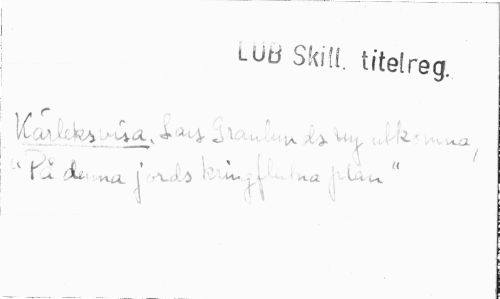 LUB Skill. titelreg.
Kärleksvisa, Lars Granlunds ny utkomna,
"På denna jords kringflutna plan"